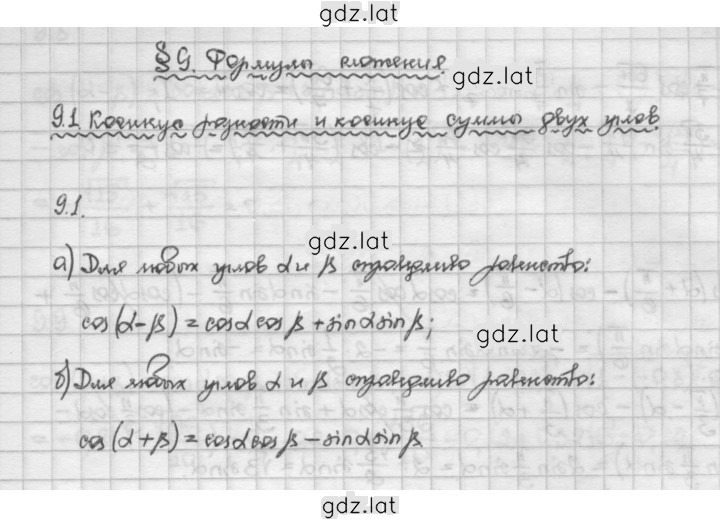 gdz.lat
§ 9. Формулы сложения.
gdz.lat
9.1 Косинус разности и косинус суммы двух углов.
9.1.
gdz.lat
а) Для любых углов α и β справедливо равенство:
cos(α-β)=cosαcosβ+sinαsinβ;
gdz.lat
б) Для любых углов α и β справедливо равенство:
gdz.lat
cos(α+β)=cosαcosβ-sinαsinβ.
gdz.lat